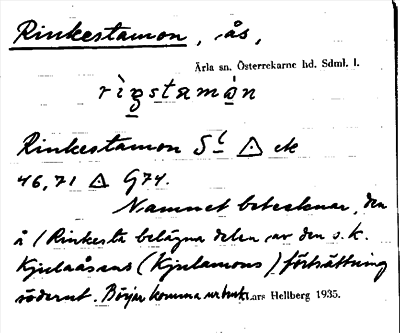 Rinkestamon, ås,
Ärla sn. Österrekarne hd. Sdml. l.
rìgstamàn
Rinkestamon SL △ ek
46,71 △ G74.
Namnet betecknar, den
å (Rinkesta belägna delen av den s.k.
Kjulaåsens (Kjulamons) fortsättning
söderut. Börjar komma ur bruk. Lars Hellberg 1935.